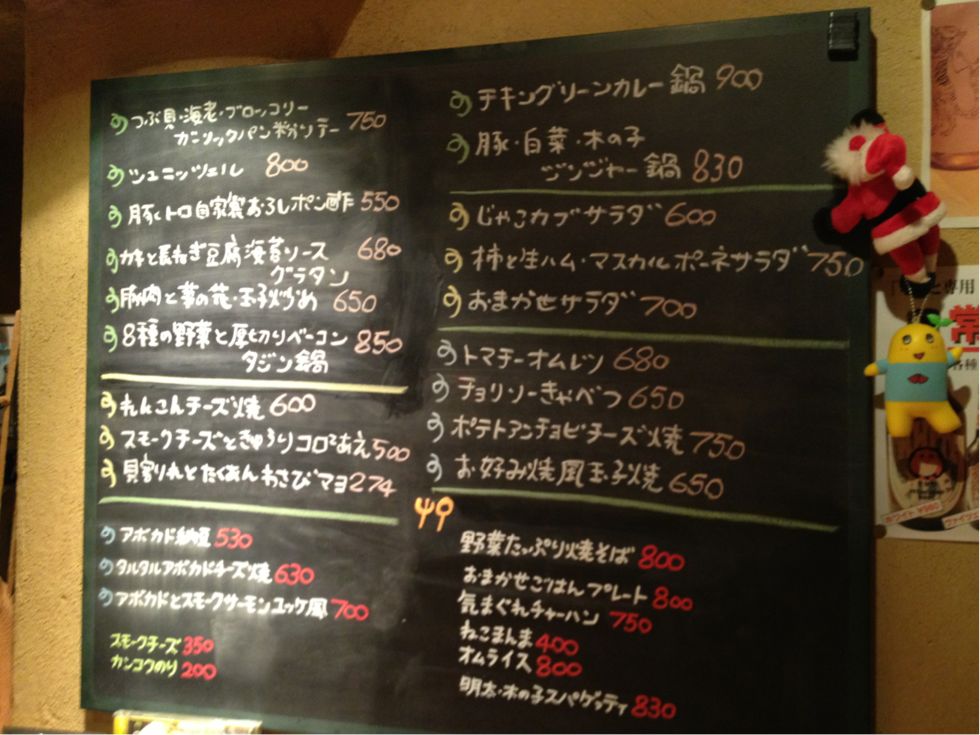 つぶ貝・海老・ブロッコリー
ガーリックパン粉ソテー 750
シュニッツェル 800
豚トロ自家製おろしポン酢 550
カキと長ねぎ豆腐海苔ソース
グラタン 680
豚肉と菜の花・玉子炒め 650
8種の野菜と厚切りベーコン
タジン鍋 850
れんこんチーズ焼 600
スモークチーズときゅうりコロコロあえ 500
貝割れとたくあんわさびマヨ 274
アボカド納豆 530
タルタルアボカドチーズ焼 630
アボカドとスモークサーモンユッケ風 700
スモークチーズ 350
カンコクのり 200
チキングリーンカレー鍋 900
豚・白菜・木の子
ジンジャー鍋 830
じゃこカブサラダ 600
柿と生ハム・マスカルポーネサラダ 750
おまかせサラダ 700
トマチーオムレツ 680
チョリソーきゃべつ 650
ポテトアンチョビチーズ焼 750
お好み焼風玉子焼 650
野菜たっぷり焼そば 800
おまかせごはんプレート 800
気まぐれチャーハン 750
ねこまんま 400
オムライス 800
明太・木の子スパゲッティ 830
専用
常
各種